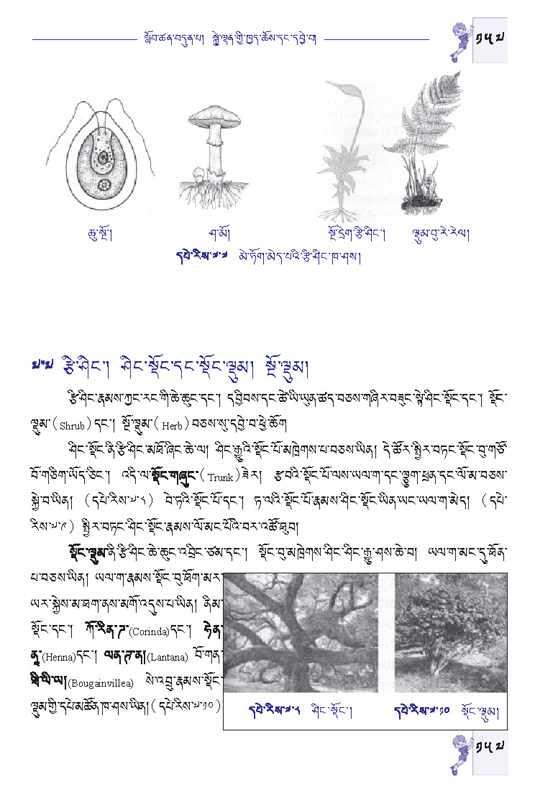 སློབ་ཚན་བདུན་པ། སྐྱེ་ལྡན་གྱི་ཁྱད་ཆོས་དང་དབྱེ་བ།
༡༥༧
ཆུ་སྔོ།
ཤ་མོ།
སྔོ་དྲེག་རྩི་ཤིང་།
ལྡུམ་བུ་རེ་རལ།
དཔེ་རིས་༧་༧ མེ་ཏོག་མེད་པའི་རྩི་ཤིང་ཁ་ཤས།
རྩི་ཤིང་། ཤིང་སྡོང་དང་སྡོང་ལྡུམ། སྔོ་ལྡུམ།
རྩི་ཤིང་རྣམས་ཀྱང་རང་གི་ཆེ་ཆུང་དང་། དབྱིབས་དང་ཚེ་ཡི་ཡུན་ཚད་བཅས་གཞིར་བཟུང་སྟེ་ཤིང་སྡོང་དང་། སྡོང་
ལྡུམ་ (Shrub) དང་། སྔོ་ལྡུམ་ (Herb) བཅས་སུ་དབྱེ་བ་ཕྱེ་ཆོག
ཤིང་སྡོང་ནི་རྩི་ཤིང་མཐོ་ཞིང་ཆེ་ལ། ཤིང་རྒྱུའི་སྡོང་པོ་མཁྲེགས་པ་བཅས་ཡིན། དེ་ཚོར་སྤྱིར་བཏང་སྡོང་བུ་གཙོ་
བོ་གཅིག་ཡོད་ཅིང་། འདི་ལ་སྡོང་གཞུང་ (Trunk) ཟེར། རྩ་བའི་སྡོང་པོ་ལས་ཡལ་ག་དང་ལྕུག་ཕྲན་དང་ལོ་མ་བཅས་
སྐྱེ་བ་ཡིན། (དཔེ་རིས་༧་༨) བེ་ཏའི་སྡོང་པོ་དང་། ཏ་ལའི་སྡོང་པོ་རྣམས་ཤིང་སྡོང་ཡིན་ཡང་ཡལ་ག་མེད། (དཔེ་
རིས་༧་༩) སྤྱིར་བཏང་ཤིང་སྡོང་རྣམས་ལོ་མང་པོའི་བར་འཚོ་ཐུབ།
སྡོང་ལྡུམ་ནི་རྩི་ཤིང་ཆེ་ཆུང་འབྲིང་ཙམ་དང་། སྡོང་བུ་མཁྲེགས་ཤིང་ཤིང་རྒྱུ་ཤས་ཆེ་བ། ཡལ་ག་མང་དུ་ཐོན་
པ་བཅས་ཡིན། ཡལ་ག་རྣམས་སྡོང་བུ་ཐོག་མར་
ཡར་སྐྱེས་མ་ཐག་ནས་མགོ་འདུས་པ་ཡིན། ནིམ་
སྡོང་དང་། ཀོ་རིན་ཌ་(Corinda)དང་། ཧེན་
ནཱ་(Henna)དང་། ལན་ཊ་ན།(Lantana) བོ་གན་
(Bougainvillea) སེ་འབྲུ་རྣམས་སྡོང་
ལྡུམ་གྱི་དཔེ་མཚོན་ཁ་ཤས་ཡིན། (དཔེ་རིས་༧་༡༠)
དཔེ་རིས་༧་༨ ཤིང་སྡོང་།
དཔེ་རིས་༧་༡༠ སྡོང་ལྡུམ།
༡༥༧